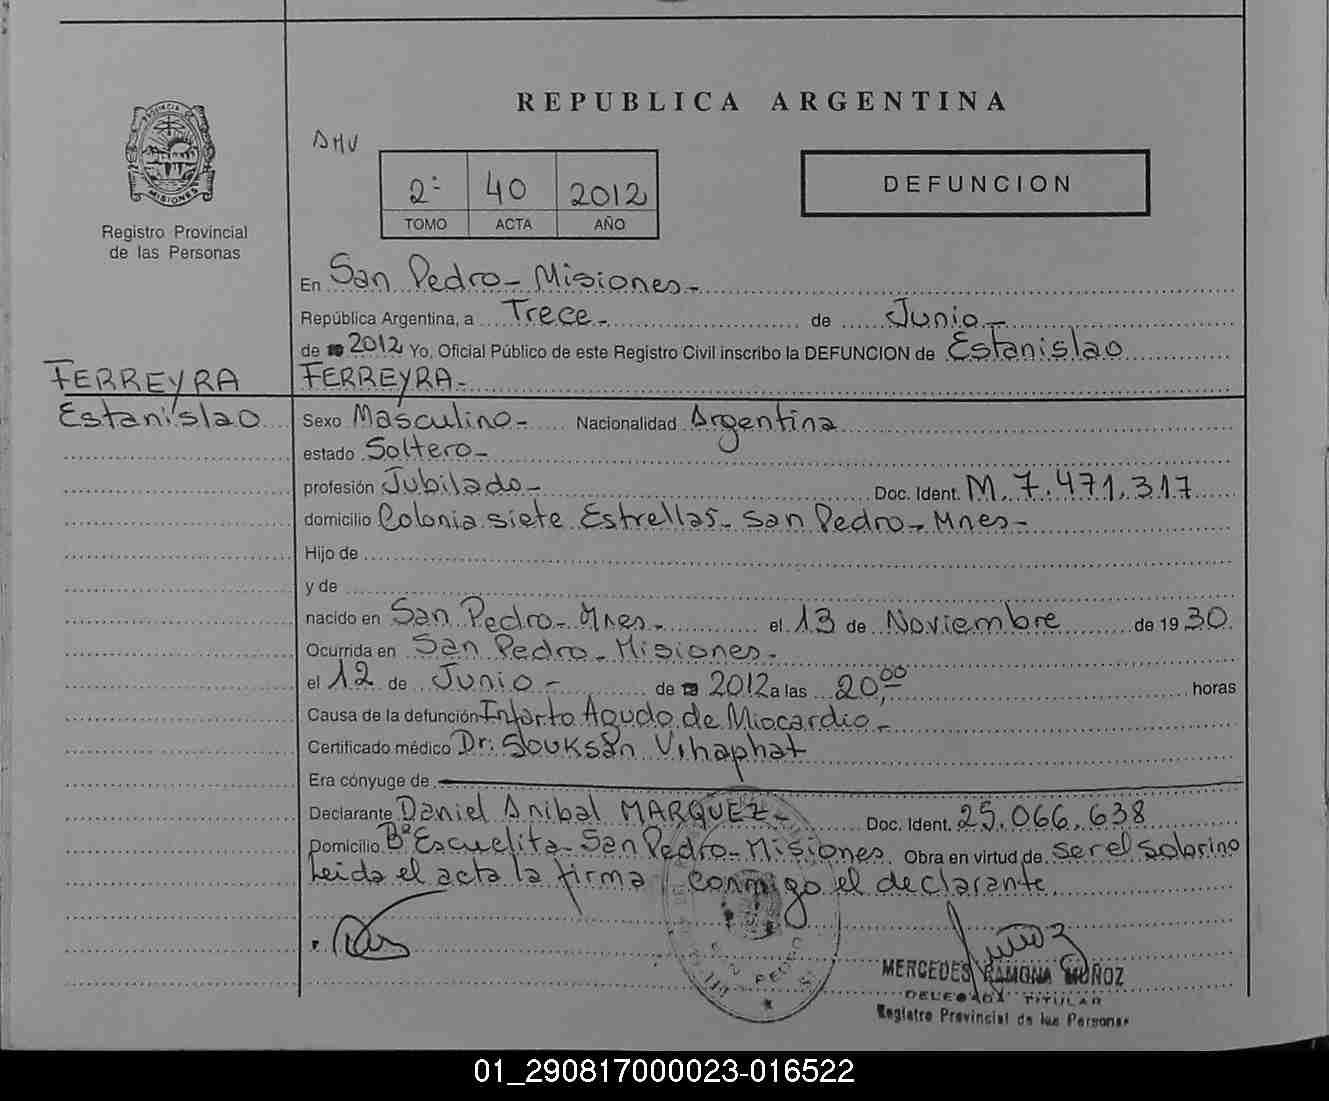 REPUBLICA ARGENTINA
PROVINCIA DE
MISIONES
Registro Provincial
de las Personas
DHV
2º 40 2012
TOMO ACTA AÑO
DEFUNCION
En San Pedro - Misiones -
República Argentina, a Trece - de Junio -
de 2012 Yo, Oficial Público de este Registro Civil inscribo la DEFUNCION de Estanislao
FERREYRA -
FERREYRA
Estanislao
Sexo Masculino - Nacionalidad Argentina
estado Soltero -
profesión Jubilado - Doc. Ident. M. 7.471.317
domicilio Colonia siete Estrellas - San Pedro - Mnes -
Hijo de
y de
nacido en San Pedro - Mnes - el 13 de Noviembre de 19 30
Ocurrida en San Pedro - Misiones -
el 12 de Junio - de 2012 a las 20,00 horas
Causa de la defunción Infarto Agudo de Miocardio -
Certificado médico Dr. Souksan Vihaphat
Era cónyuge de
Declarante Daniel Anibal MARQUEZ - Doc. Ident. 25.066.638
Domicilio Bº Escuelita - San Pedro - Misiones. Obra en virtud de ser el sobrino
Leida el acta la firma conmigo el declarante
SAN PEDRO
MERCEDES RAMONA MUÑOZ
DELEGADA TITULAR
Registro Provincial de las Personas
01_290817000023-016522